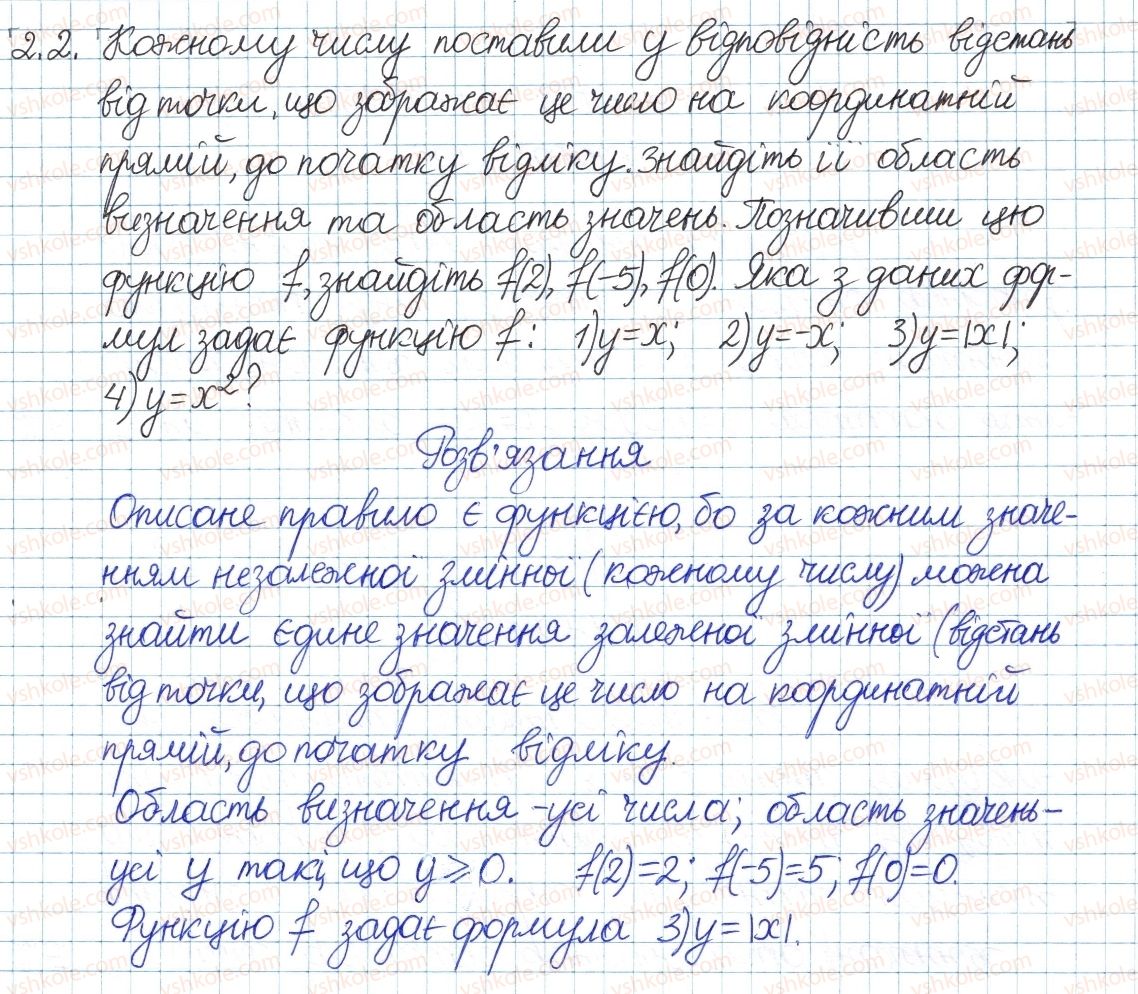 2.2. Кожному числу поставили у відповідність відстань
від точки, що зображає це число на координатній
прямій, до початку відліку. Знайдіть її область
визначення та область значень. Позначивши цю
функцію f, знайдіть f(2), f(-5), f(0). Яка з даних фор-
мул задає функцію f: 1) y=x; 2) y=-x; 3) y=|x|;
4) y=x²?
Розв'язання
Описане правило є функцією, бо за кожним значе-
нням незалежної змінної (кожному числу) можна
знайти єдине значення залежної змінної (відстань
від точки, що зображає це число на координатній
прямій, до початку відліку.
Область визначення -усі числа; область значень-
усі y такі, що y⩾0. f(2)=2; f(-5)=5; f(0)=0.
Функцію f задає формула 3) y=|x|.